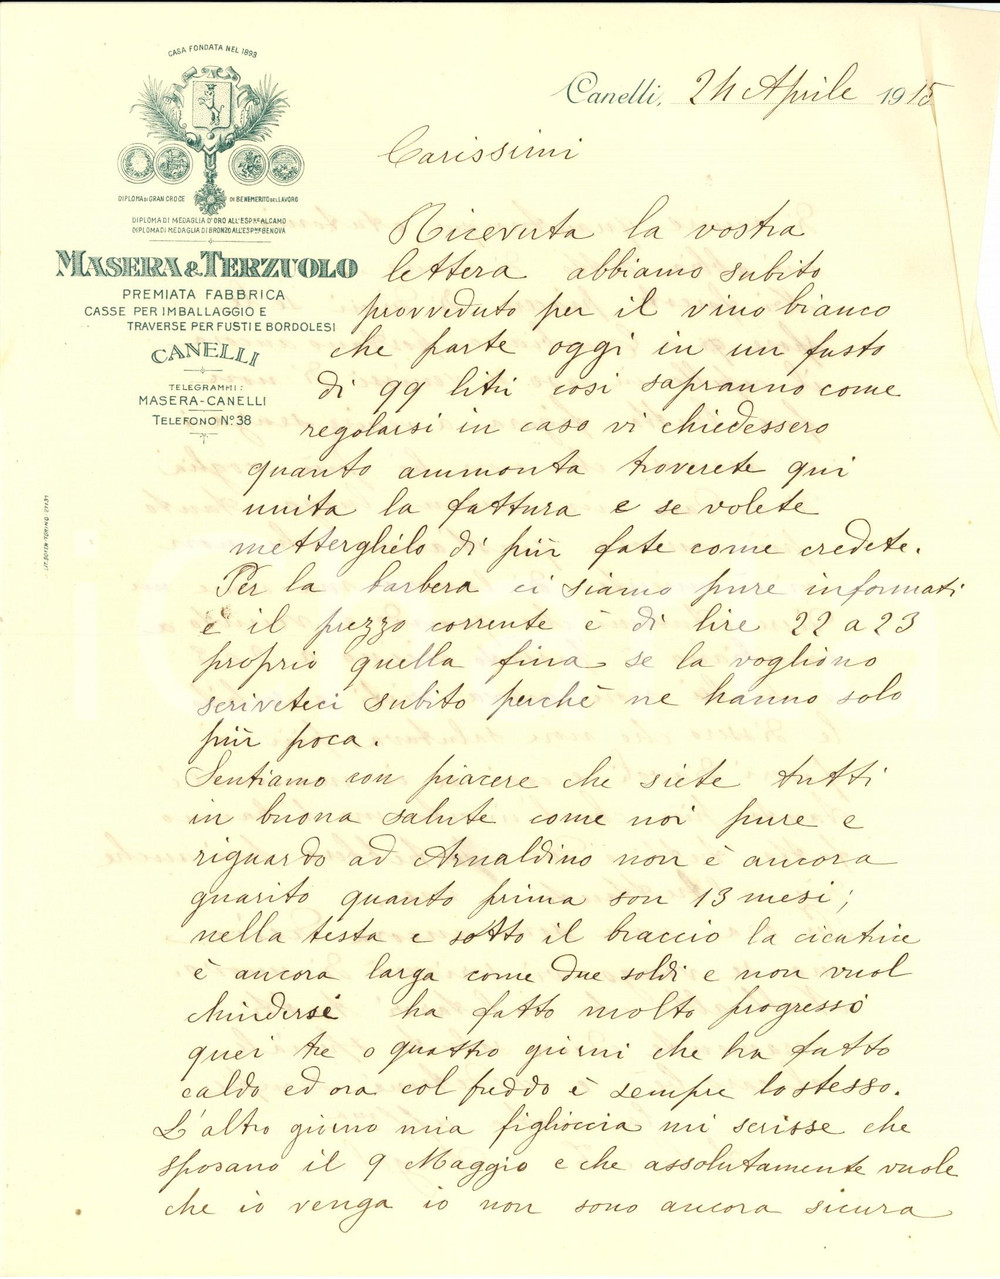 CASA FONDATA NEL 1893
DIPLOMA DI GRAN CROCE DI BENEMERITO DEL LAVORO
DIPLOMA DI MEDAGLIA D'ORO ALL'ESP.NE ALCAMO
DIPLOMA DI MEDAGLIA DI BRONZO ALL'ESP.NE GENOVA
MASERA & TERZUOLO
PREMIATA FABBRICA
CASSE PER IMBALLAGGIO E
TRAVERSE PER FUSTI E BORDOLESI
CANELLI
TELEGRAMMI:
MASERA-CANELLI
TELEFONO N.º 38
Canelli, 24 Aprile 1915
Carissimi
Ricevuta la vostra
lettera abbiamo subito
provveduto per il vino bianco
che parte oggi in un fusto
di 99 litri così sapranno come
regolarsi in caso vi chiedessero
quanto ammonta troverete qui
unita la fattura e se volete
metterghélo di più fate come credete.
Per la barbera ci siamo pure informati
e il prezzo corrente è di lire 22 a 23
proprio quella fina se la vogliono
scriveteci subito perchè ne hanno solo
più poca.
Sentiamo con piacere che siete tutti
in buona salute come noi pure e
riguardo ad Arnaldino non è ancora
guarito quanto prima son 13 mesi;
nella testa e sotto il braccio la cicatrice
è ancora larga come due soldi e non vuol
chiudersi ha fatto molto progresso
quei tre o quattro giorni che ha fatto
caldo ed ora col freddo è sempre lo stesso.
L'altro giorno mia figlioccia mi scrisse che
sposano il 9 Maggio e che assolutamente vuole
che io venga io non sono ancora sicura